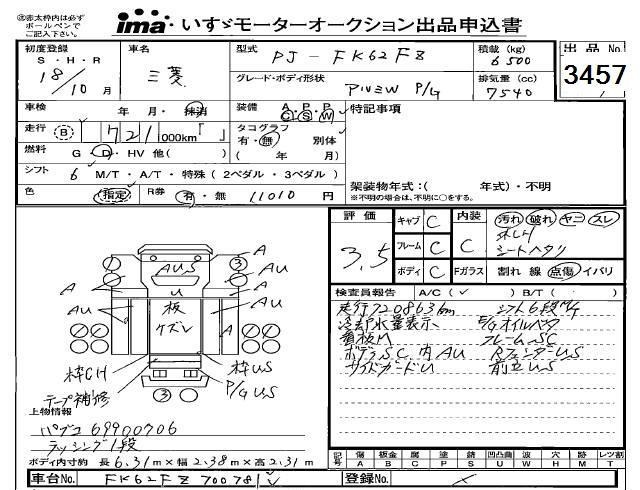 ㊟赤太枠内は必ず
ボールペンで
ご記入下さい。
ima いすゞモーターオークション出品申込書
初度登録 S・H・R 18/10月
車名 三菱
型式 PJ-FK62FZ
積載(kg) 6500
出品No. 3457
グレード・ボディ形状 アルミW P/G
排気量(cc) 7540
車検 年 月・抹消
装備 A P P C S W
特記事項
走行 B 721 000km「 」
タコグラフ 有・無 別体 ( 年 月)
燃料 G D HV 他( )
シフト 6 M/T・A/T・特殊(2ペダル・3ペダル)
架装物年式:( 年式)・不明
※不明の場合は、不明に○をする。
色 指定 R券 有・無 11010円
評価 3.5
キャブ C 内装 C 汚れ 破れ ヤニ スレ
フレーム C シートヘタリ
ボディ C Fガラス 割れ 線 点傷 イバリ
検査員報告 A/C(✓) B/T( )
走行720863km シフト6段M/T
冷却水量表示 E/Gオイルベタ
看板M フレームSC
ボデーSC、内AU RフェンダーUS
サイドガードU 前立US
A A
1 3
AUS
A A U AU
AU 板 AU
ケズレ
枠CH 枠US
テープ補修 P/G US
3
上物情報
パブコ 69900706
ラッシング1段
ボディ内寸約 長6.31m×幅2.38m×高2.31m
記号 傷 A 板金 B 腐 C 塗 P 錆 S 凹凸曲 U 波 W 穴 H 跡 M レツ割 T
車台No. FK62FZ700781
登録No.